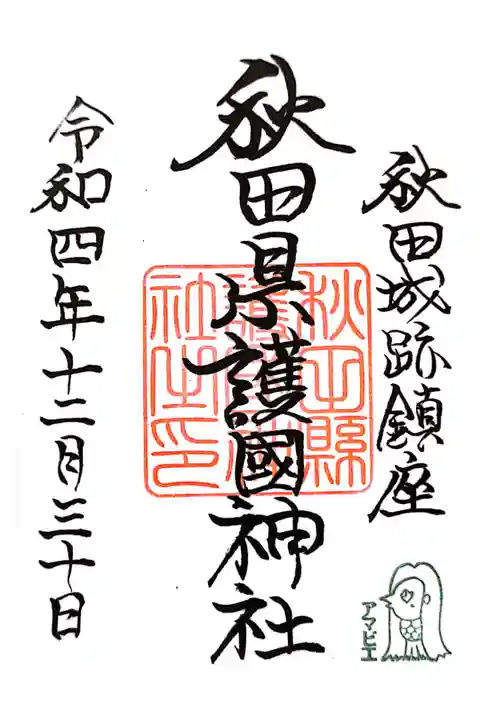 秋田城跡鎮座
秋田県護國神社
秋田縣護國神社之印
令和四年十二月三十日
アマビエ